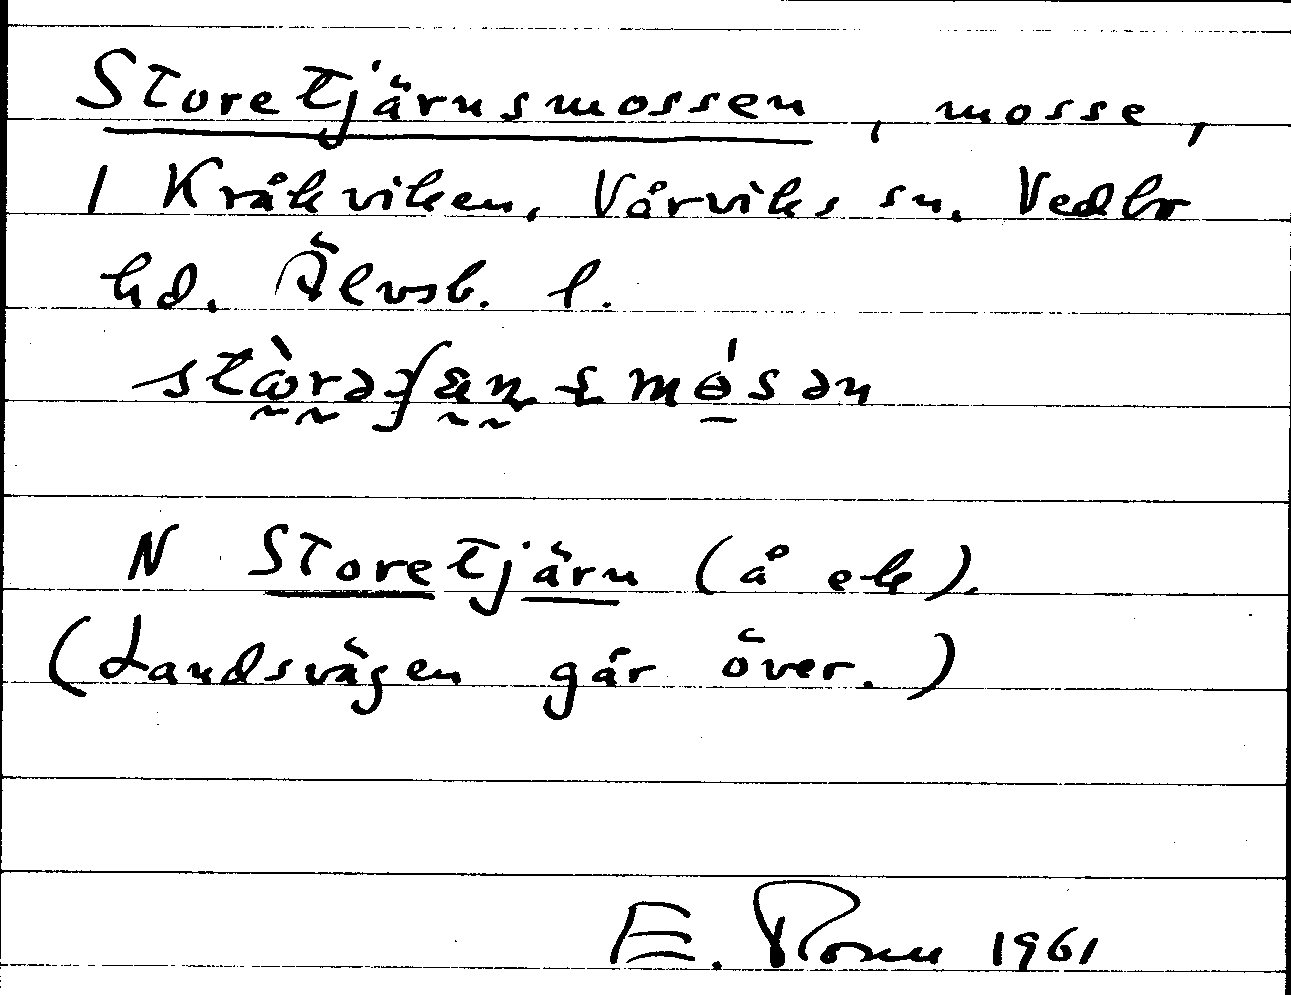 Storetjärnsmossen, mosse,
1 Kråkviken, Vårviks sn. Vedbo
hd. Älvsb. l.
N Storetjärn (å ek).
(Landsvägen går över.)
E. 1961